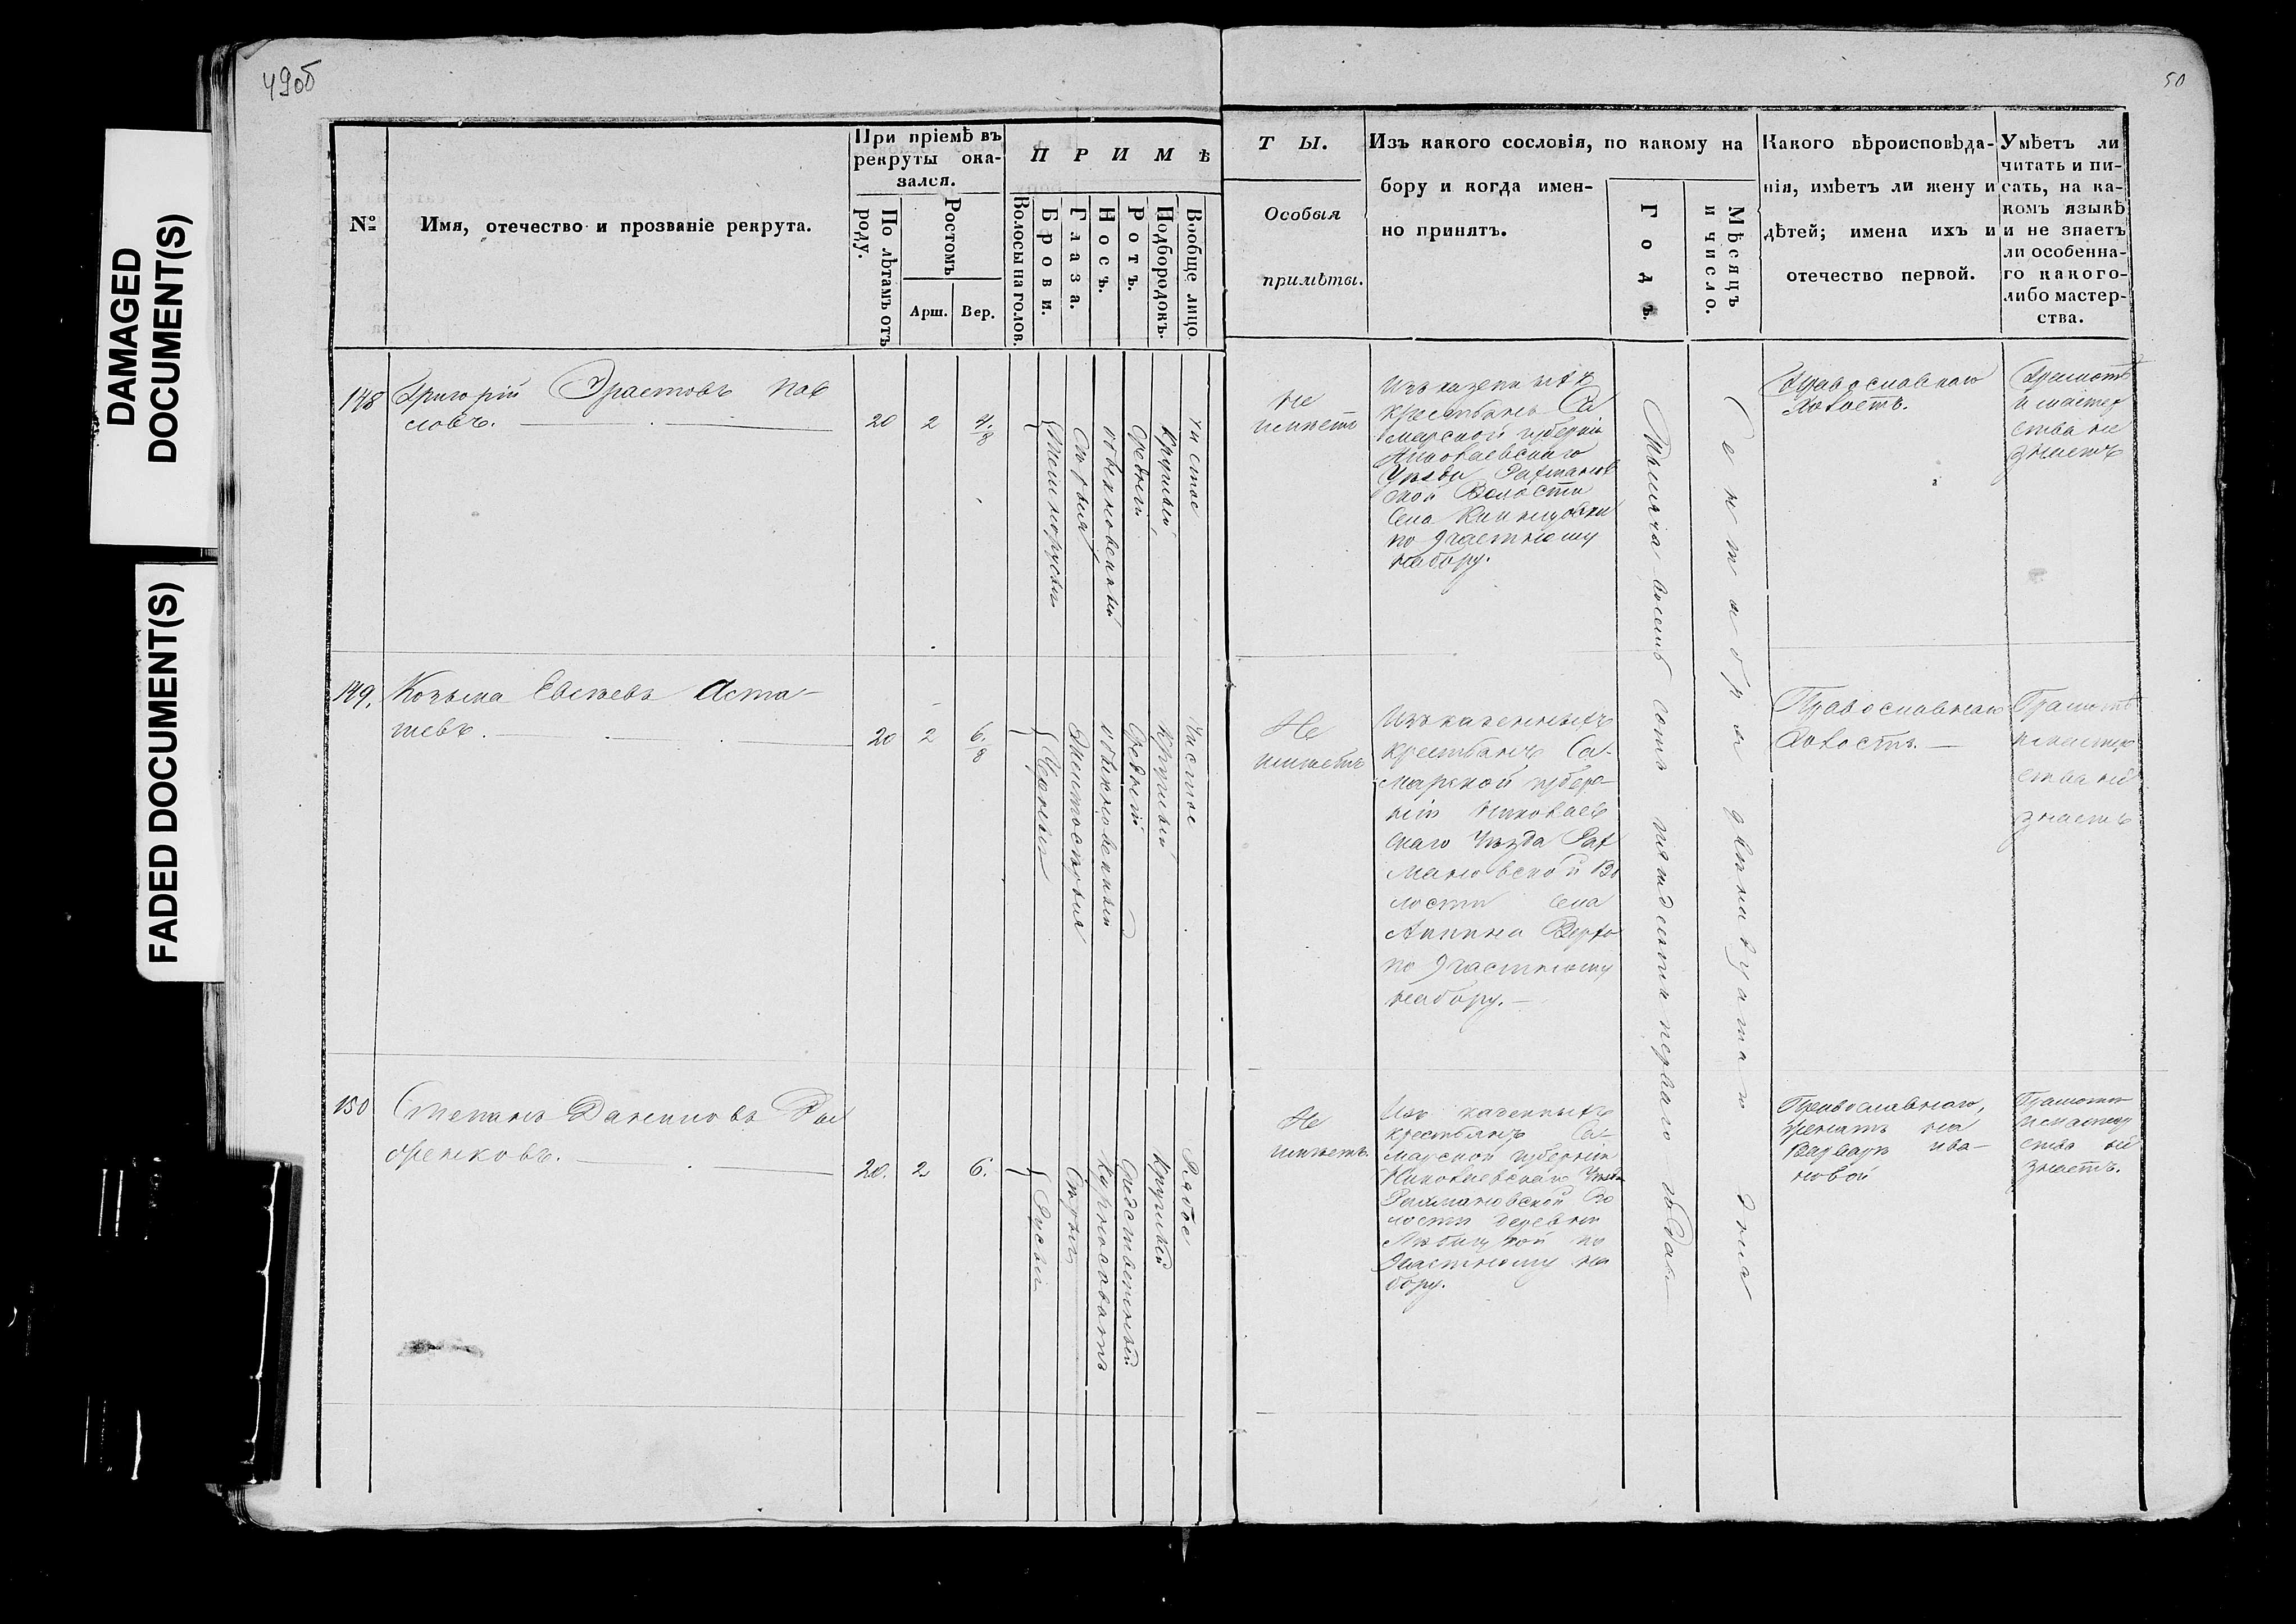 49об
50
DAMAGED
DOCUMENT(S)
FADED DOCUMENT(S)
№
Имя, отечество и прозваніе рекрута.
При пріемѣ въ
рекруты ока-
зался.
По лѣтамъ отъ
роду.
Ростомъ
Арш.
Вер.
П Р И М Ѣ
Волосы на голов.
Брови.
Глаза.
Носъ.
Ротъ.
Подбородокъ.
Вообще лицо.
Т Ы.
Особыя
примѣты.
Изъ какого сословія, по какому на
бору и когда имен-
но принятъ.
Годъ.
Мѣсяцъ
и число.
Какого вѣроисповѣда-
нія, имѣетъ ли жену и
дѣтей; имена ихъ и
отечество первой.
Умѣетъ ли
читать и пи-
сать, на ка-
комъ языкѣ
и не знаетъ
ли особенна-
го какого-
либо мастер-
ства.
148
Григорій Эрастовъ Пав
ловъ.
20
2
4/8
Темнорусыя
Сѣрыя
обыкновенный
Средній
Круглый
Чистое
Не
имѣетъ
Изъ казенныхъ
крестьянъ Са
марской губерніи
Николаевскаго
Уѣзда Рахманов
ской Волости
Села
по участному
набору.
Православнаго
Холостъ.
Грамотѣ
и мастер
ства не
знаетъ
149.
Козьма Евсѣевъ Аста-
шевъ.
20
2
6/8
Черныя
обыкновенный
Средній
Круглый
Чистое
Не
имѣетъ
Изъ казенныхъ
крестьянъ Са-
марской губер-
ніи Николаев
скаго Уѣзда Рах
мановской Во
лости Села
по участному
набору.
Православнаго
Холостъ.
Грамотѣ
и мастер
ства не
знаетъ
150
Степанъ Даниловъ
20.
2
6.
Русыя
Сѣрыя
Курносоватъ
Посредственный
Круглый
Рябое
Не
имѣетъ.
Изъ казенныхъ
крестьянъ Са-
марской губерніи
Николаевскаго Уѣзда
Рахмановской Во
лости деревни
по
участному на
бору.
Православнаго,
женатъ на
Варварѣ Ива-
новой
Грамотѣ
и мастер
ства не
знаетъ.
Тысяча восемь сотъ пятьдесятъ перваго года
Сентября двѣнадцатаго дня